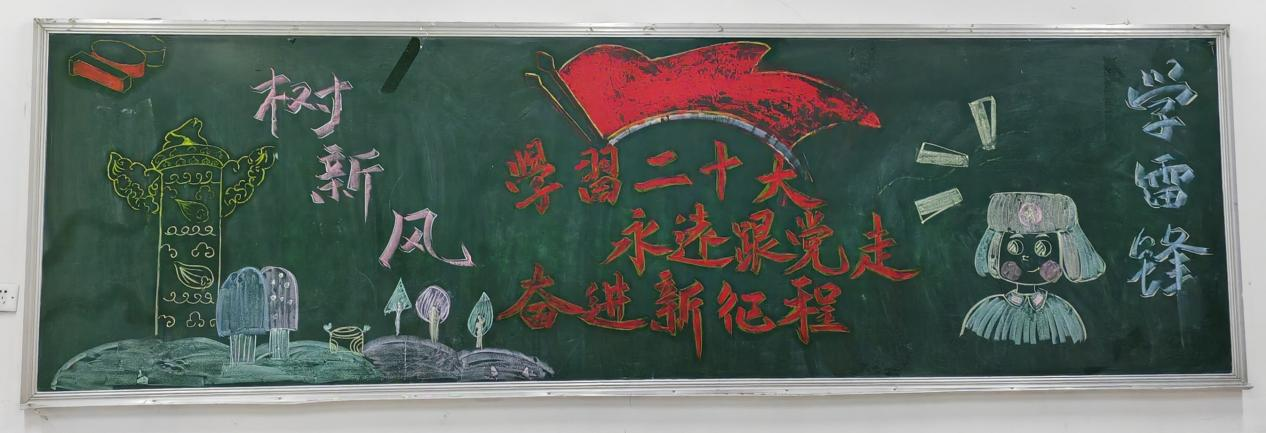 树新风
學習二十大
永远跟党走
奋进新征程
学雷锋